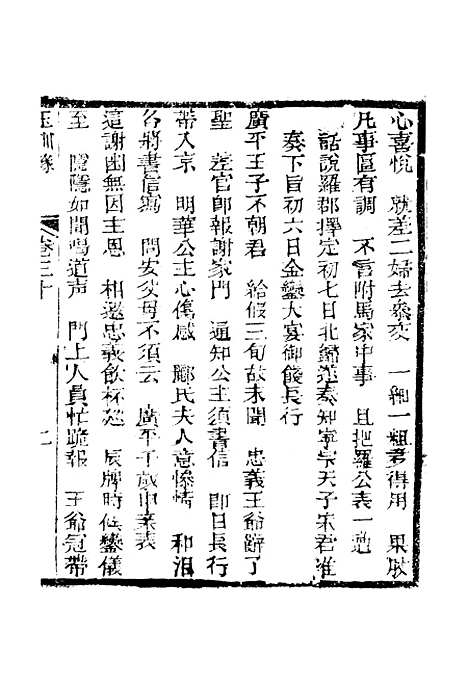 心喜悅　就差二婦去　一細一粗多得用　果
凡事區有調　不言附馬家中事　且把羅公表一
話說羅郡擇定初七日北歸　奏知寧宗天子宋君准
奏下旨初六日金鑾大宴御餞長行
廣平王子不朝君　給假三旬故未聞　忠義王爺辭了
聖　差官卽報謝家門　通知公主須書信　卽日長行
帶入京　明華公主心傷感　鄺氏夫人意慘悽　和淚
各將書信寫　問安父母不須云　廣平千歲申業表
這謝幽無因主恩　相邀忠義飲杯　辰牌時候鑾儀
至　隱隱如聞喝道声　門上人員忙跪報　王爺冠帶
玉釧緣　卷三十　七